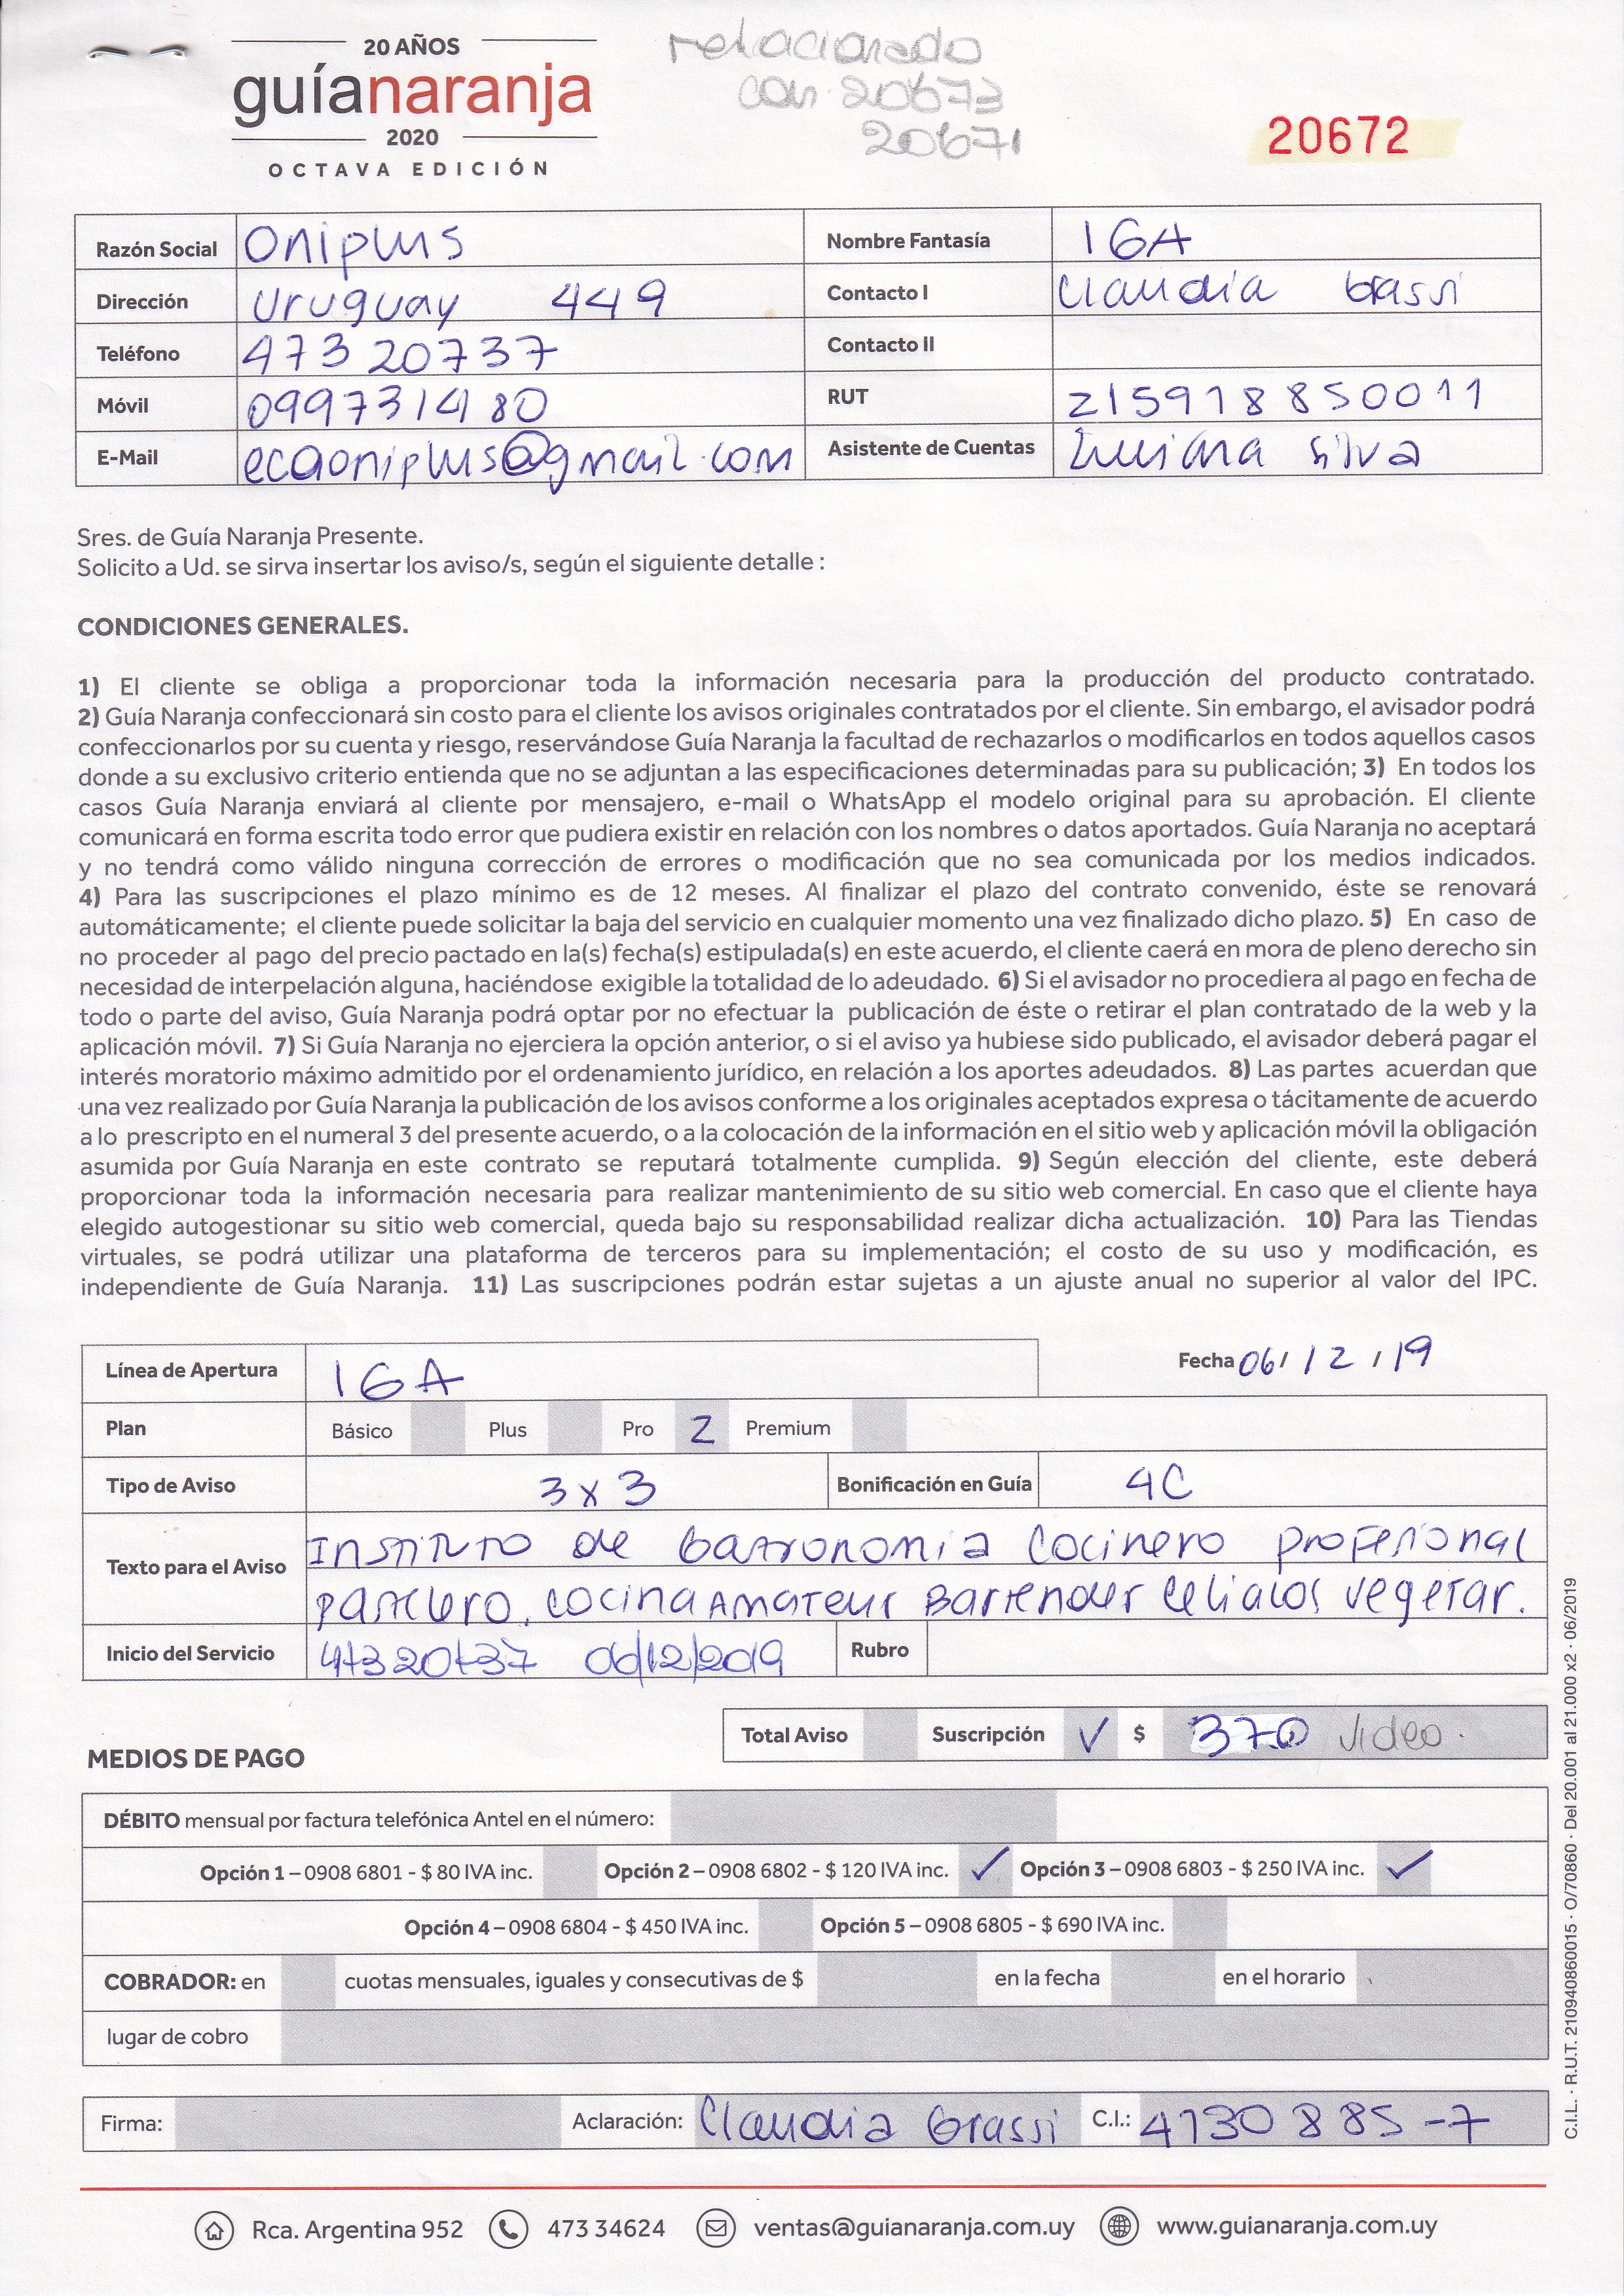 20 AÑOS
guíanaranja
2020
OCTAVA EDICIÓN
relacionado
con 20673
20671
20672
Razón Social Oniplus Nombre Fantasía IGA
Dirección Uruguay 449 Contacto I Claudia Grassi
Teléfono 473 20737 Contacto II
Móvil 099731480 RUT 215918850011
E-Mail ecaoniplus@gmail.com Asistente de Cuentas Luciana Silva
Sres. de Guía Naranja Presente.
Solicito a Ud. se sirva insertar los aviso/s, según el siguiente detalle :
CONDICIONES GENERALES.
1) El cliente se obliga a proporcionar toda la información necesaria para la producción del producto contratado.
2) Guía Naranja confeccionará sin costo para el cliente los avisos originales contratados por el cliente. Sin embargo, el avisador podrá
confeccionarlos por su cuenta y riesgo, reservándose Guía Naranja la facultad de rechazarlos o modificarlos en todos aquellos casos
donde a su exclusivo criterio entienda que no se adjuntan a las especificaciones determinadas para su publicación; 3) En todos los
casos Guía Naranja enviará al cliente por mensajero, e-mail o WhatsApp el modelo original para su aprobación. El cliente
comunicará en forma escrita todo error que pudiera existir en relación con los nombres o datos aportados. Guía Naranja no aceptará
y no tendrá como válido ninguna corrección de errores o modificación que no sea comunicada por los medios indicados.
4) Para las suscripciones el plazo mínimo es de 12 meses. Al finalizar el plazo del contrato convenido, éste se renovará
automáticamente; el cliente puede solicitar la baja del servicio en cualquier momento una vez finalizado dicho plazo. 5) En caso de
no proceder al pago del precio pactado en la(s) fecha(s) estipulada(s) en este acuerdo, el cliente caerá en mora de pleno derecho sin
necesidad de interpelación alguna, haciéndose exigible la totalidad de lo adeudado. 6) Si el avisador no procediera al pago en fecha de
todo o parte del aviso, Guía Naranja podrá optar por no efectuar la publicación de éste o retirar el plan contratado de la web y la
aplicación móvil. 7) Si Guía Naranja no ejerciera la opción anterior, o si el aviso ya hubiese sido publicado, el avisador deberá pagar el
interés moratorio máximo admitido por el ordenamiento jurídico, en relación a los aportes adeudados. 8) Las partes acuerdan que
una vez realizado por Guía Naranja la publicación de los avisos conforme a los originales aceptados expresa o tácitamente de acuerdo
a lo prescripto en el numeral 3 del presente acuerdo, o a la colocación de la información en el sitio web y aplicación móvil la obligación
asumida por Guía Naranja en este contrato se reputará totalmente cumplida. 9) Según elección del cliente, este deberá
proporcionar toda la información necesaria para realizar mantenimiento de su sitio web comercial. En caso que el cliente haya
elegido autogestionar su sitio web comercial, queda bajo su responsabilidad realizar dicha actualización. 10) Para las Tiendas
virtuales, se podrá utilizar una plataforma de terceros para su implementación; el costo de su uso y modificación, es
independiente de Guía Naranja. 11) Las suscripciones podrán estar sujetas a un ajuste anual no superior al valor del IPC.
Línea de Apertura IGA Fecha 06/ 12 / 19
Plan Básico Plus Pro 2 Premium
Tipo de Aviso 3 x 3 Bonificación en Guía 4C
Texto para el Aviso Instituto de Gastronomia Cocinero profesional
pastelero. cocina Amateur Bartender Celiacos vegetar.
Inicio del Servicio 47320737 06/12/2019 Rubro
Total Aviso Suscripción ✓ $ 370 video.
MEDIOS DE PAGO
DÉBITO mensual por factura telefónica Antel en el número:
Opción 1 – 0908 6801 - $ 80 IVA inc. Opción 2 – 0908 6802 - $ 120 IVA inc. ✓ Opción 3 – 0908 6803 - $ 250 IVA inc. ✓
Opción 4 – 0908 6804 - $ 450 IVA inc. Opción 5 – 0908 6805 - $ 690 IVA inc.
COBRADOR: en cuotas mensuales, iguales y consecutivas de $ en la fecha en el horario
lugar de cobro
Firma: Aclaración: Claudia Grassi C.I.: 4130885-7
Rca. Argentina 952 473 34624 ventas@guianaranja.com.uy www.guianaranja.com.uy
C.I.L. · R.U.T. 210940860015 · O/70860 · Del 20.001 al 21.000 x2 · 06/2019